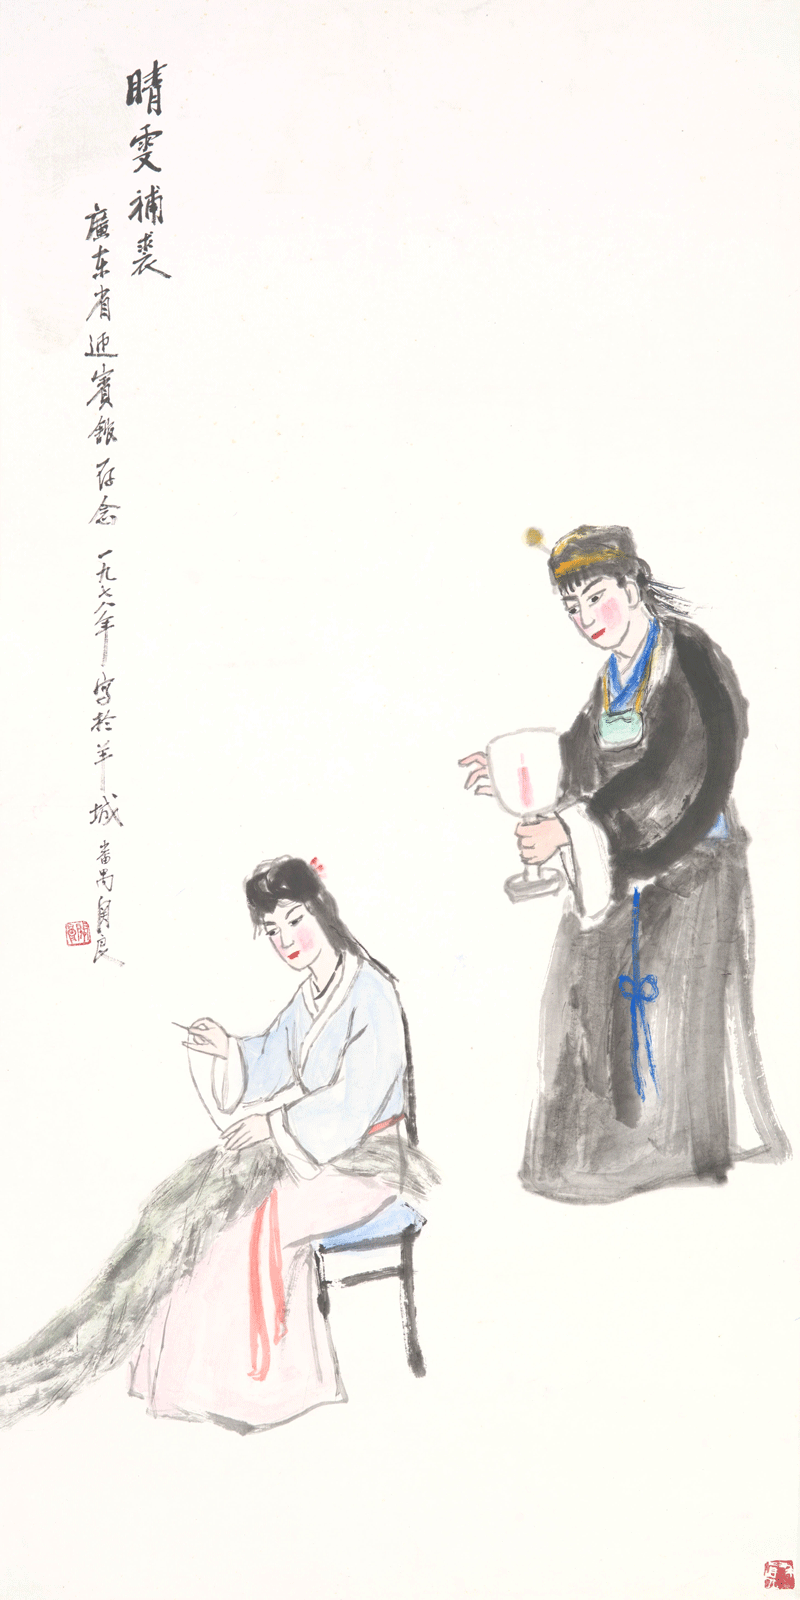 晴雯補裘
廣东省迎賓館存念 一九七八年 写於羊城 番禺関良